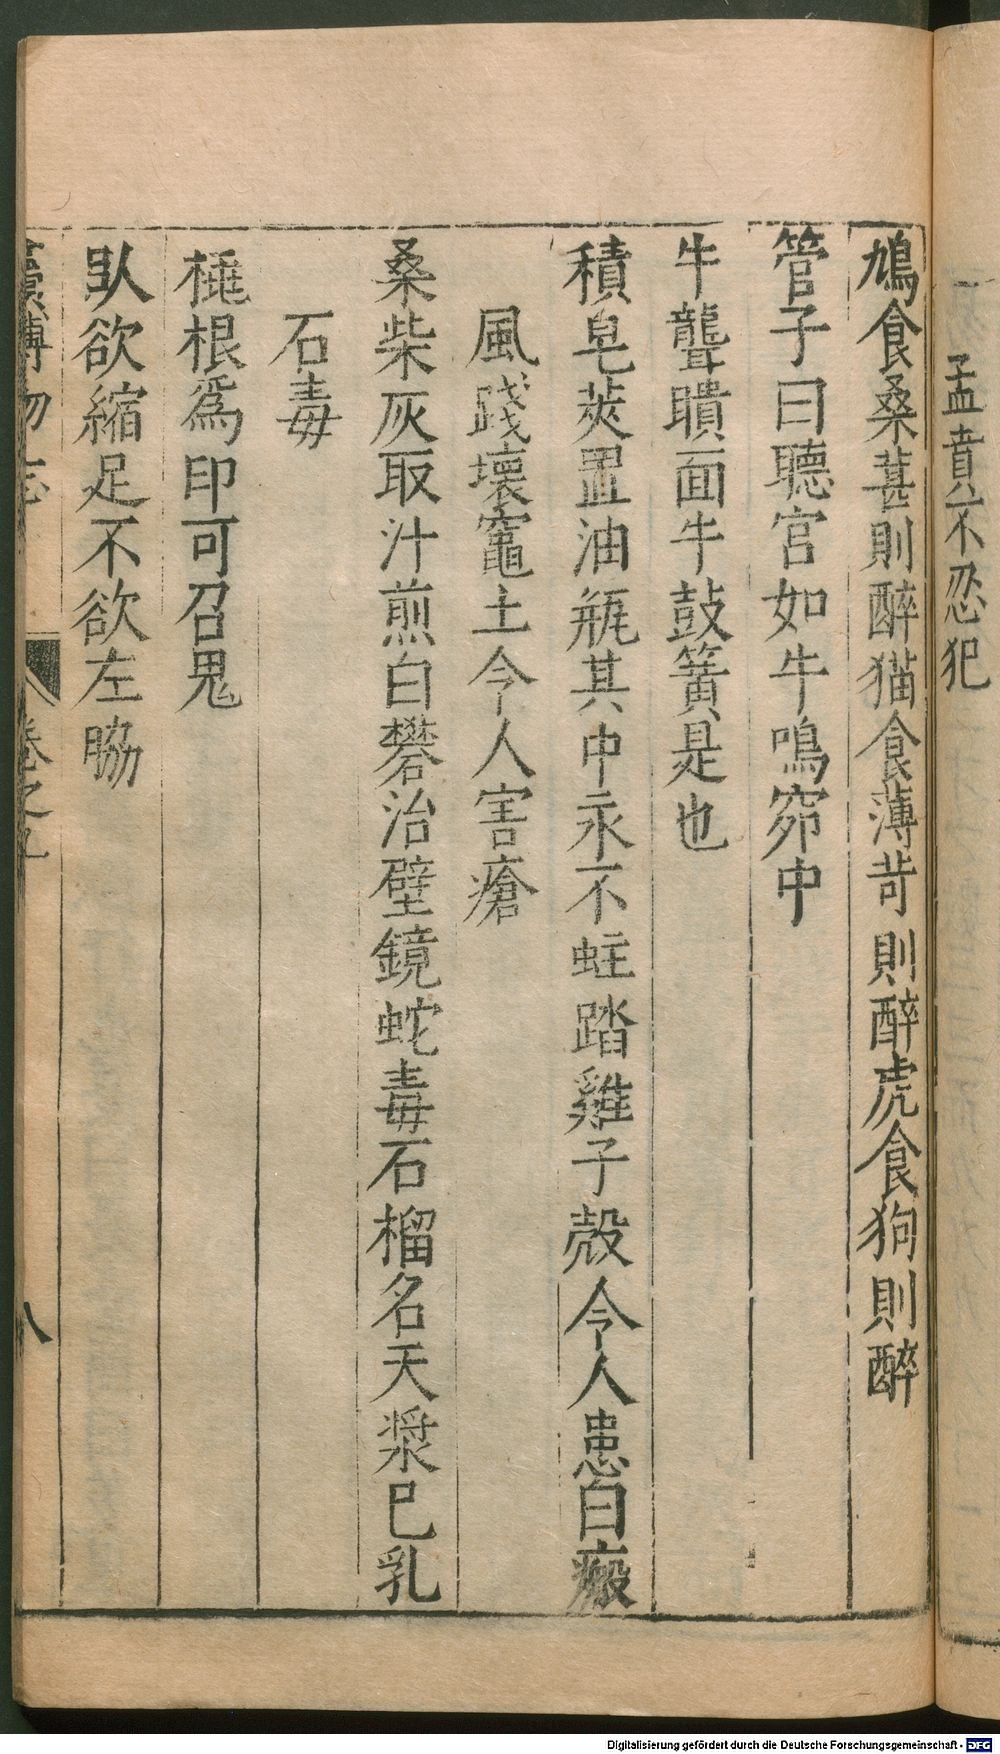 孟賁不忍犯
鳩食桑葚則醉猫食薄荷則醉虎食狗則醉
管子曰聽宫如牛鳴窌中
牛聾瞶面牛鼓簧是也
積皂莢置油瓶其中永不蛀踏雞子殻令人患白瘢
風踐壞竈土令人害瘡
桑柴灰取汁煎白礬治壁鏡蛇毒石榴名天漿已乳
石毒
橇根爲印可召鬼
卧欲縮足不欲左脇
博物志
卷之九
八
Digitalisierung gefördert durch die Deutsche Forschungsgemeinschaft - DFG